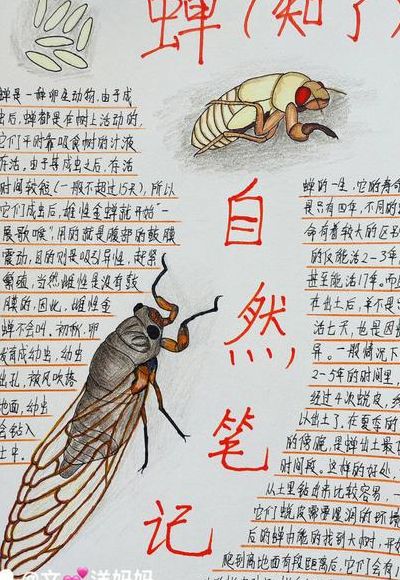 蝉(知了)
蝉是一种卵生动物,由于成
虫后,蝉都是在树上活动的,
它们平时靠吸食树的汁液
存活。由于其成虫之后,存活
时间较能(一般不超过15天),所以
它们成虫后,雄性金蝉就开始"一
展歌喉",用的就是腹部的鼓膜
震动,目的则是吸引异性,赶紧
繁殖,当然雌性是没有鼓
膜的,因此,雌性金
蝉不会叫。初秋,卵
发育成幼虫,幼虫
出孔,被风吹落
地面,幼虫
会钻入
土中。
自然笔记
蝉的一生,它的寿命
是只有四年,不同的
命有着较大的区别
的仅能活2-3年,
甚至能活17年。而
在出土后,并不是
活七天,也是因
异。一般情况下
2-5年的时间里,
经过4次蜕皮,
以出土了,在夏季的
的傍晚,是蝉出土最
时间段。这样的好处,
从土里钻出来比较容易,一
它们蜕皮需要湿润的环境
后的蝉由能的找到大树,开
爬到离地面有段距离后,它们会有1
@文💕洋妈妈